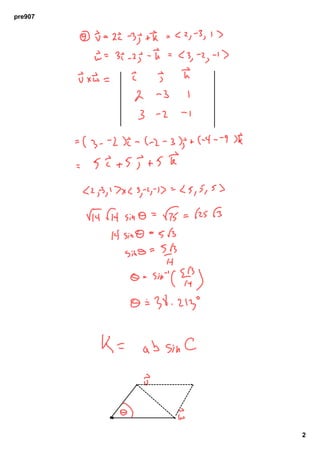 pre907
⑨ v⃗ = 2i⃗ -3j⃗ + k⃗ = <2, -3, 1>
w⃗ = 3i⃗ -2j⃗ - k⃗ = <3, -2, -1>
v⃗ x w⃗ = | i⃗ j⃗ k⃗ |
2 -3 1
3 -2 -1
= (3 - -2)i⃗ - (-2 -3)j⃗ + (-4 - -9)k⃗
= 5i⃗ + 5j⃗ + 5k⃗
<2,-3,1> x <3,-2,-1> = <5,5,5>
√14 √14 sin θ = √75 = √25 √3
14 sin θ = 5√3
sin θ = 5√3/14
θ = sin⁻¹(5√3/14)
θ = 38.213°
K = ab sin C
v⃗
θ
w⃗
2